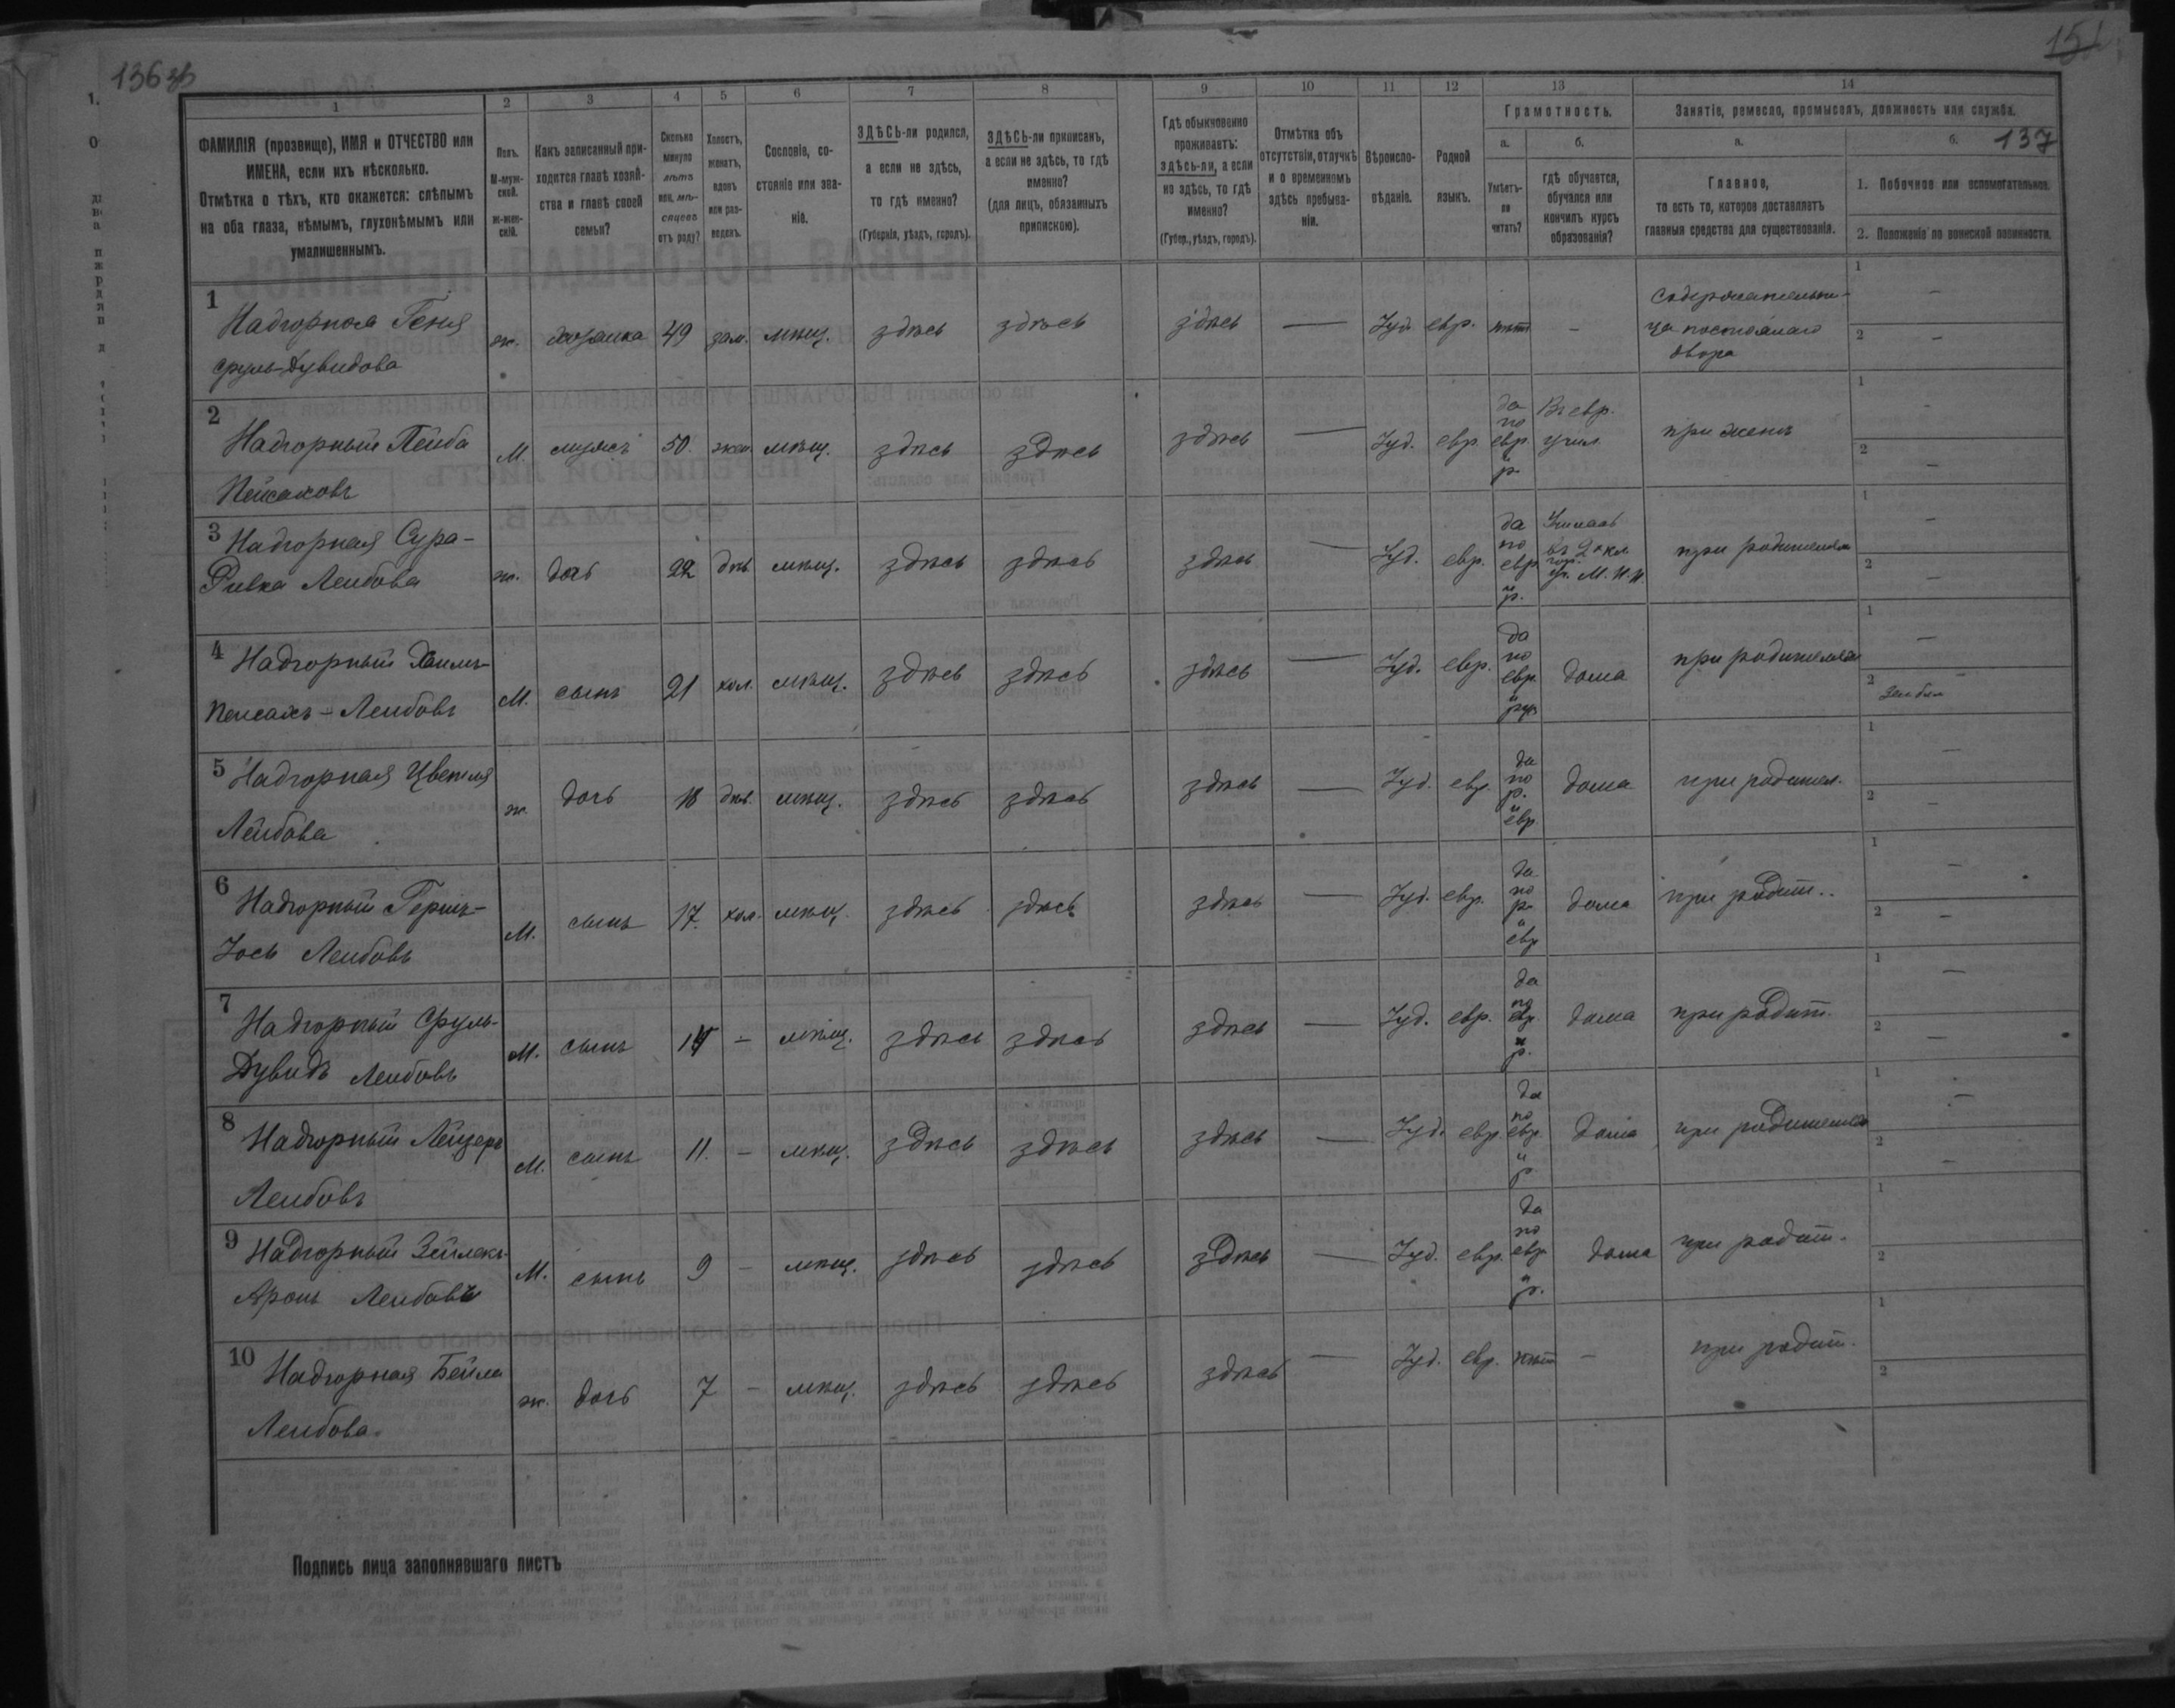 136 зв
151
137
1 2 3 4 5 6 7 8 9 10 11 12 13 14
ФАМИЛІЯ (прозвище), ИМЯ и ОТЧЕСТВО или
ИМЕНА, если ихъ нѣсколько.
Отмѣтка о тѣхъ, кто окажется: слѣпымъ
на оба глаза, нѣмымъ, глухонѣмымъ или
умалишеннымъ.
Полъ.
М-муж-
ской.
Ж-жен-
скій.
Какъ записанный при-
ходится главѣ хозяй-
ства и главѣ своей
семьи?
Сколько
минуло
лѣтъ
или мѣ-
сяцевъ
отъ роду?
Холостъ,
женатъ,
вдовъ
или раз-
веденъ.
Сословіе, со-
стояніе или зва-
ніе.
ЗДѢСЬ-ли родился,
а если не здѣсь,
то гдѣ именно?
(Губернія, уѣздъ, городъ).
ЗДѢСЬ-ли приписанъ,
а если не здѣсь, то гдѣ
именно?
(для лицъ, обязанныхъ
припискою).
Гдѣ обыкновенно
проживаетъ:
здѣсь-ли, а если
не здѣсь, то гдѣ
именно?
(Губер., уѣздъ, городъ).
Отмѣтка объ
отсутствіи, отлучкѣ
и о временномъ
здѣсь пребыва-
ніи.
Вѣроиспо-
вѣданіе.
Родной
языкъ.
Грамотность.
а.
Умѣетъ-
ли
читать?
б.
гдѣ обучается,
обучался или
кончилъ курсъ
образованія?
Занятіе, ремесло, промыселъ, должность или служба.
а.
Главное,
то есть то, которое доставляетъ
главныя средства для существованія.
б.
1. Побочное или вспомогательное.
2. Положеніе по воинской повинности.
1 Надгорная Геня
Сруль-Дувидова
ж. хозяйка 49 зам. мѣщ. здѣсь здѣсь здѣсь — Іуд. евр. нѣтъ —
Содержательни-
ца постоялаго
двора
1 —
2 —
2 Надгорный Лейба
Пейсаховъ
М. мужъ 50. жен. мѣщ. здѣсь здѣсь здѣсь — Іуд. евр.
да
по
евр.
и
р.
Въ евр.
учил.
при женѣ
1 —
2 —
3 Надгорная Сура-
Ривка Лейбова
ж. дочь 22 дѣв. мѣщ. здѣсь здѣсь здѣсь — Іуд. евр.
да
по
евр.
и
р.
въ 2х кл.
М. Н. П.
при родителях
1 —
2 —
4 Надгорный Хаимъ-
Пейсахъ-Лейбовъ
М. сынъ 21 хол. мѣщ. здѣсь здѣсь здѣсь — Іуд. евр.
да
по
евр.
и
рус
дома
при родителях
1 —
2
5 Надгорная Цветля
Лейбова
ж. дочь 18 дѣв. мѣщ. здѣсь здѣсь здѣсь — Іуд. евр.
да
по
р.
и
евр.
дома
при родител.
1 —
2 —
6 Надгорный Гершъ-
Іось Лейбовъ
М. сынъ 17. хол. мѣщ. здѣсь здѣсь здѣсь — Іуд. евр.
да
по
р.
и
евр
дома
при родит..
1 —
2 —
7 Надгорный Сруль-
Дувидъ Лейбовъ
М. сынъ 14 — мѣщ. здѣсь здѣсь здѣсь — Іуд. евр.
да
по
евр.
и
р.
дома
при родит.
1 —
2 —
8 Надгорный Лейзеръ
Лейбовъ
М. сынъ 11. — мѣщ. здѣсь здѣсь здѣсь — Іуд. евр.
да
по
евр.
и
р.
дома
при родителях
1 —
2 —
9 Надгорный Зейлекъ-
Аронъ Лейбовъ
М. сынъ 9 — мѣщ. здѣсь здѣсь здѣсь — Іуд. евр.
да
по
евр.
и
р.
дома
при родит.
1
2
10 Надгорная Бейла
Лейбова
ж. дочь 7 — мѣщ. здѣсь здѣсь здѣсь — Іуд. евр. нѣтъ —
при родит.
1
2
Подпись лица заполнявшаго листъ